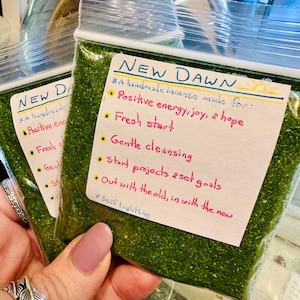 NEW DAWN
*A handmade incense made for:
Positive energy, joy, & hope
Fresh start
Gentle cleansing
Start projects & set goals
Out with the old, in with the new
*self lighting
NEW DA
*A handmade
Positive en
Fresh s
Ge